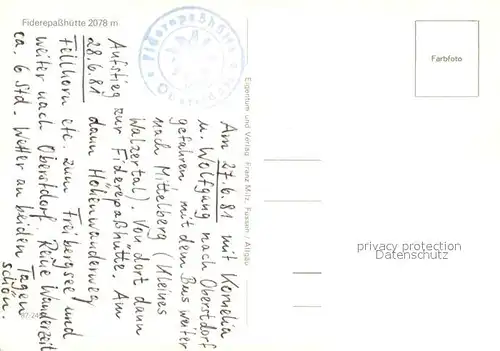 Fiderepaßhütte 2078 m
Fiderepaßhütte
Farbfoto
Eigentum und Verlag Franz Milz, Füssen / Allgäu
Am 27.6.81 mit Kornelia
u. Wolfgang nach Oberstdorf
gefahren mit dem Bus weiter
nach Mittelberg (Kleines
Walzertal). Von dort dann
Aufstieg zur Fiderepaßhütte. Am
28.6.81 dann Höhenwanderweg
Fellhorn etc. zum Freibergsee und
weiter nach Oberstdorf. Reine Wanderzeit
ca. 6 Std. Wetter an beiden Tagen
schön.
privacy protection
Datenschutz